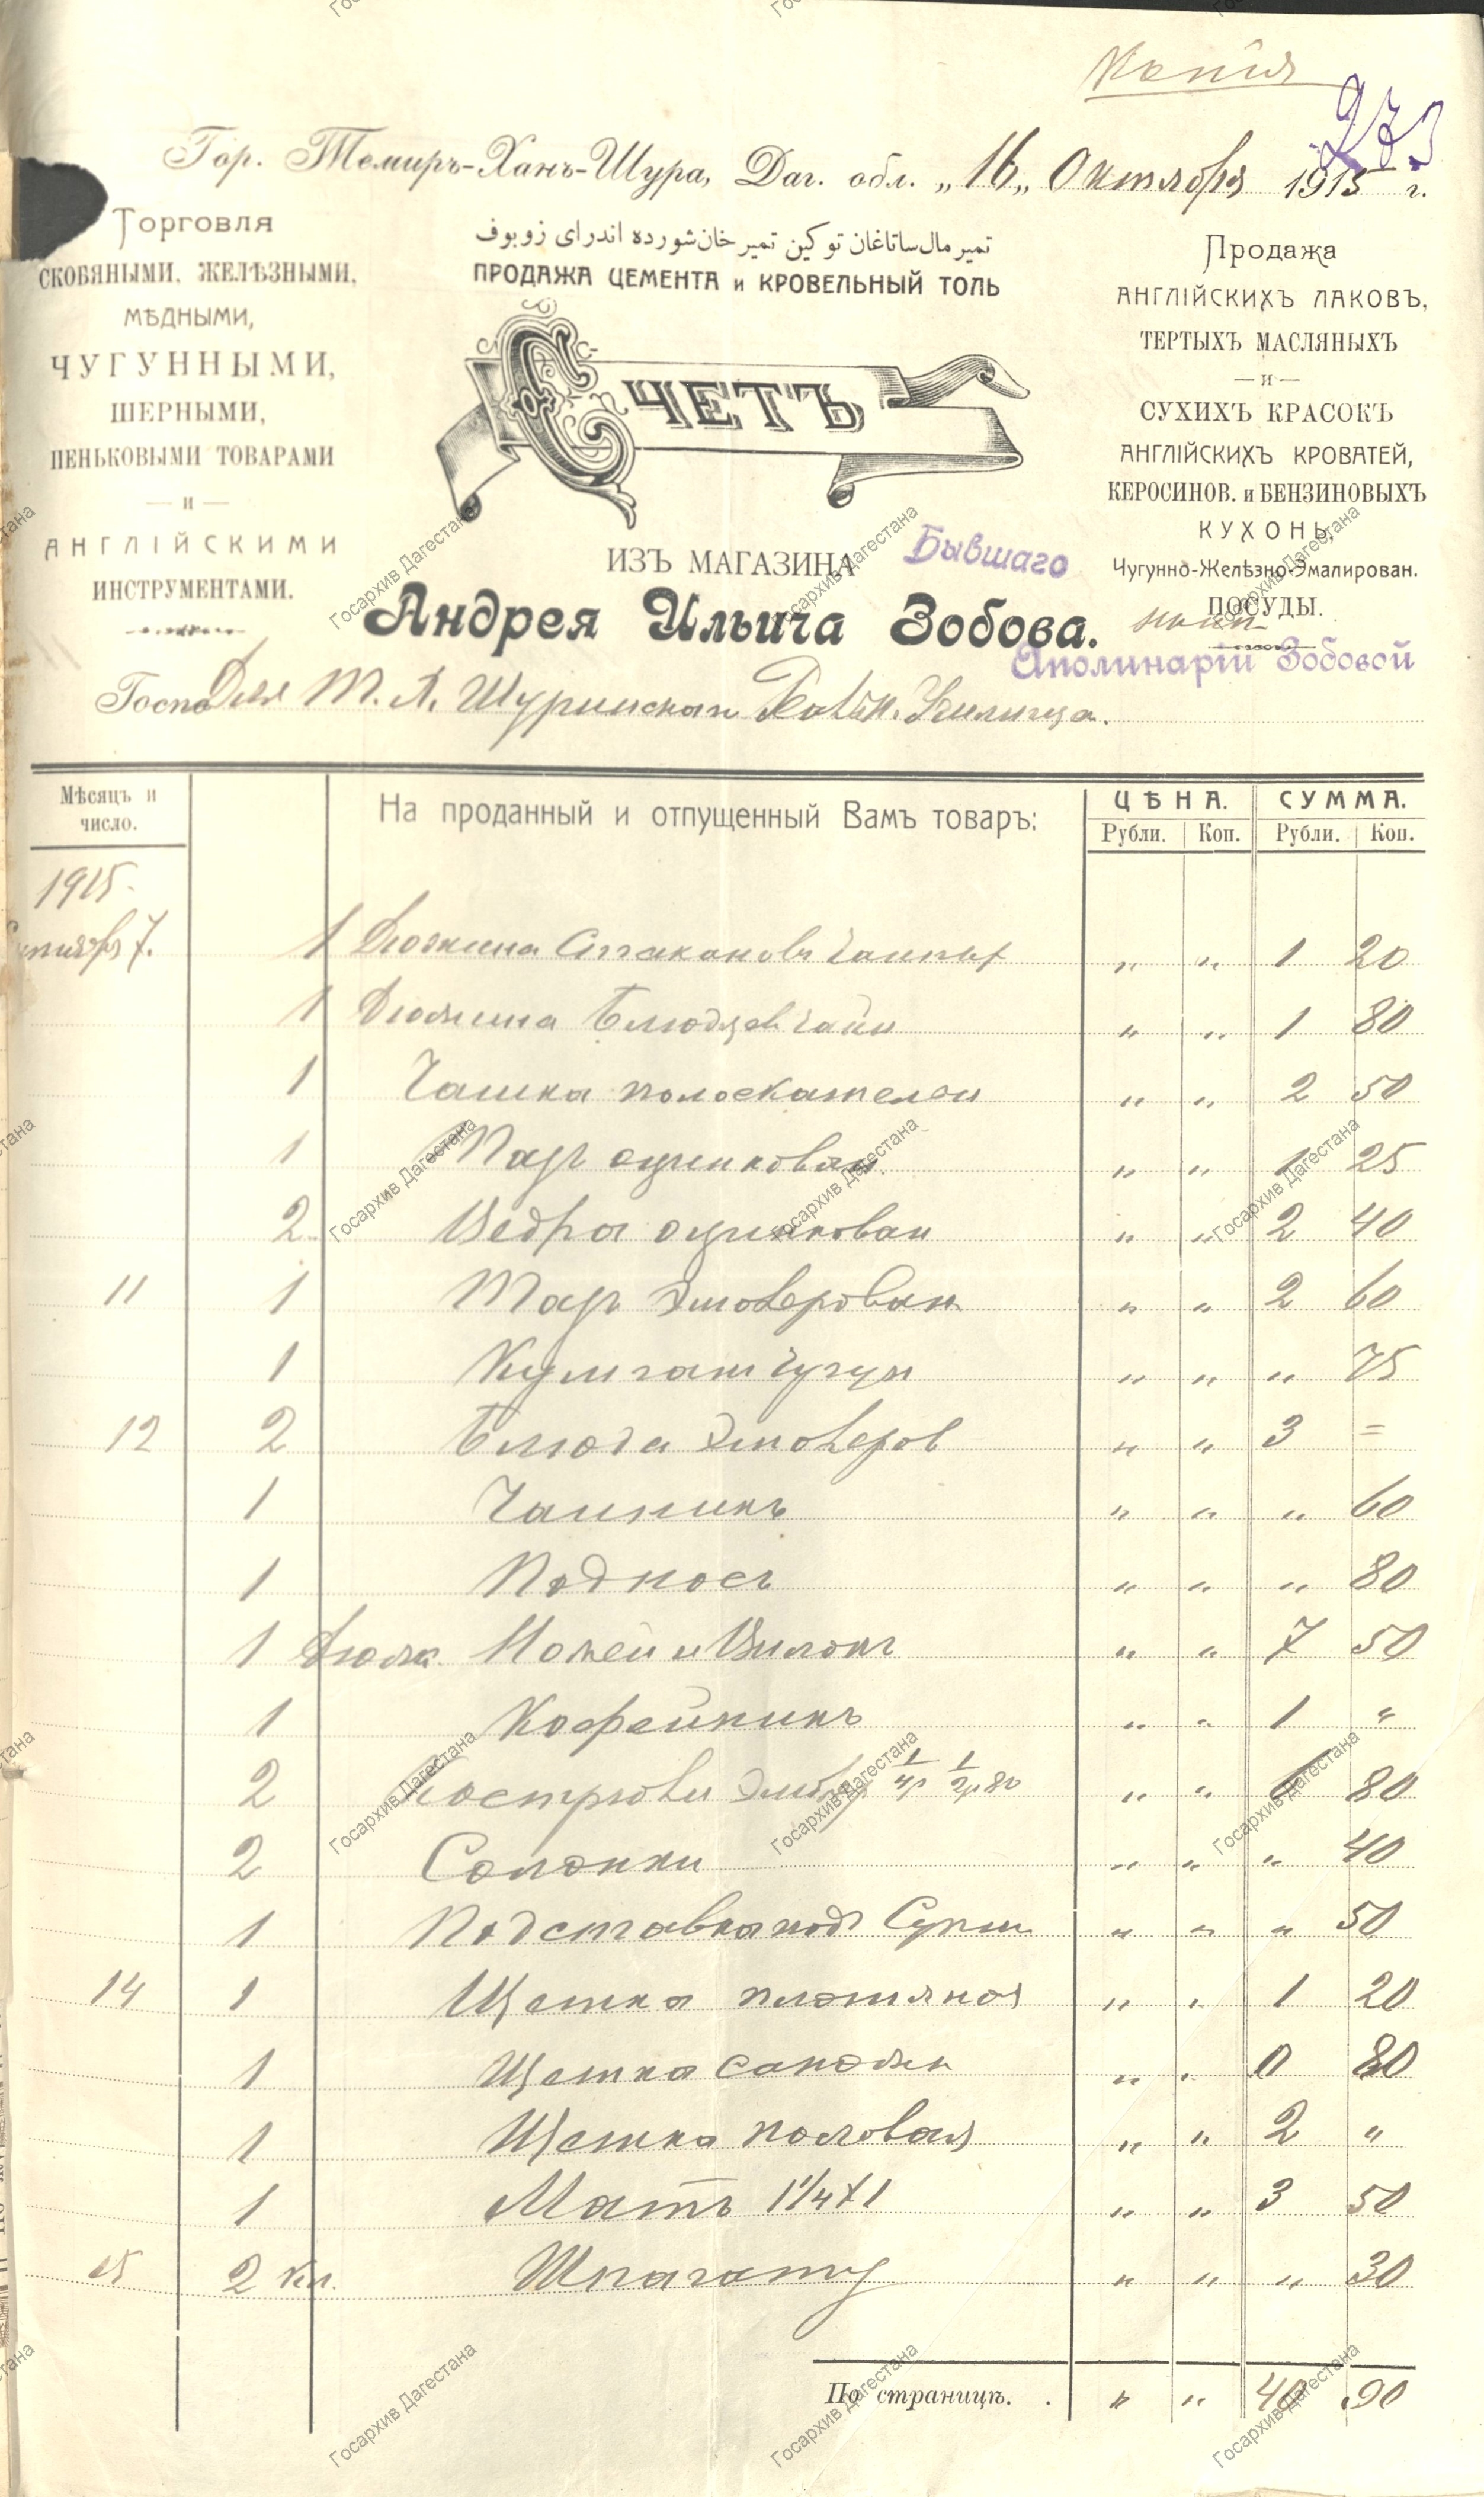 Копія
273
Гор. Темиръ-Ханъ-Шура, Даг. обл. „16„ Октября 1915 г.
Торговля
СКОБЯНЫМИ, ЖЕЛѢЗНЫМИ,
МѢДНЫМИ,
ЧУГУННЫМИ,
ШЕРНЫМИ,
ПЕНЬКОВЫМИ ТОВАРАМИ
— и —
АНГЛІЙСКИМИ
ИНСТРУМЕНТАМИ.
تمیر مال ساتاغان توکین تمیر خان شورده اندرای زوبوف
ПРОДАЖА ЦЕМЕНТА и КРОВЕЛЬНЫЙ ТОЛЬ
СЧЕТЪ
ИЗЪ МАГАЗИНА Бывшаго
Андрея Ильича Зобова.
Аполинаріи Зобовой
Продажа
АНГЛІЙСКИХЪ ЛАКОВЪ,
ТЕРТЫХЪ МАСЛЯНЫХЪ
— и —
СУХИХЪ КРАСОКЪ
АНГЛІЙСКИХЪ КРОВАТЕЙ,
КЕРОСИНОВ. и БЕНЗИНОВЫХЪ
КУХОНЬ,
Чугунно-Желѣзно-Эмалирован.
ПОСУДЫ.
Госпо Для Т. Х. Шуринскаг
Мѣсяцъ и число. На проданный и отпущенный Вамъ товаръ: ЦѢНА. СУММА.
Рубли. Коп. Рубли. Коп.
1915
7. 1 Дюжина Стакановъ Чайных „ „ 1 20
1 Дюжина Блюдцев Чайн „ „ 1 80
1 Чашка полоскателън „ „ 2 50
1 Тазъ оцинкован „ „ 1 25
2 Ведра оцинкован „ „ 2 40
11 1 Тазъ Эмалерован „ „ 2 60
1 Кумган Чугун „ „ „ 75
12 2 Блюда Эмалеров „ „ 3 =
1 Чайникъ „ „ „ 60
1 Подносъ „ „ „ 80
1 Дюж. Ножей и Вилокъ „ „ 7 50
1 Кофейникъ „ „ 1 „
2 Кострюли „ „ 6 80
2 Солонки „ „ „ 40
1 Подставка под „ „ „ 50
14 1 Щетка платяная „ „ 1 20
1 Щетка сапожн „ „ 0 80
1 Щетка половая „ „ 2 „
1 Матъ 1 1/4 х 1 „ „ 3 50
15 2 кл. Шпагату „ „ „ 30
По страницѣ. „ „ 40 90
Госархив Дагестана